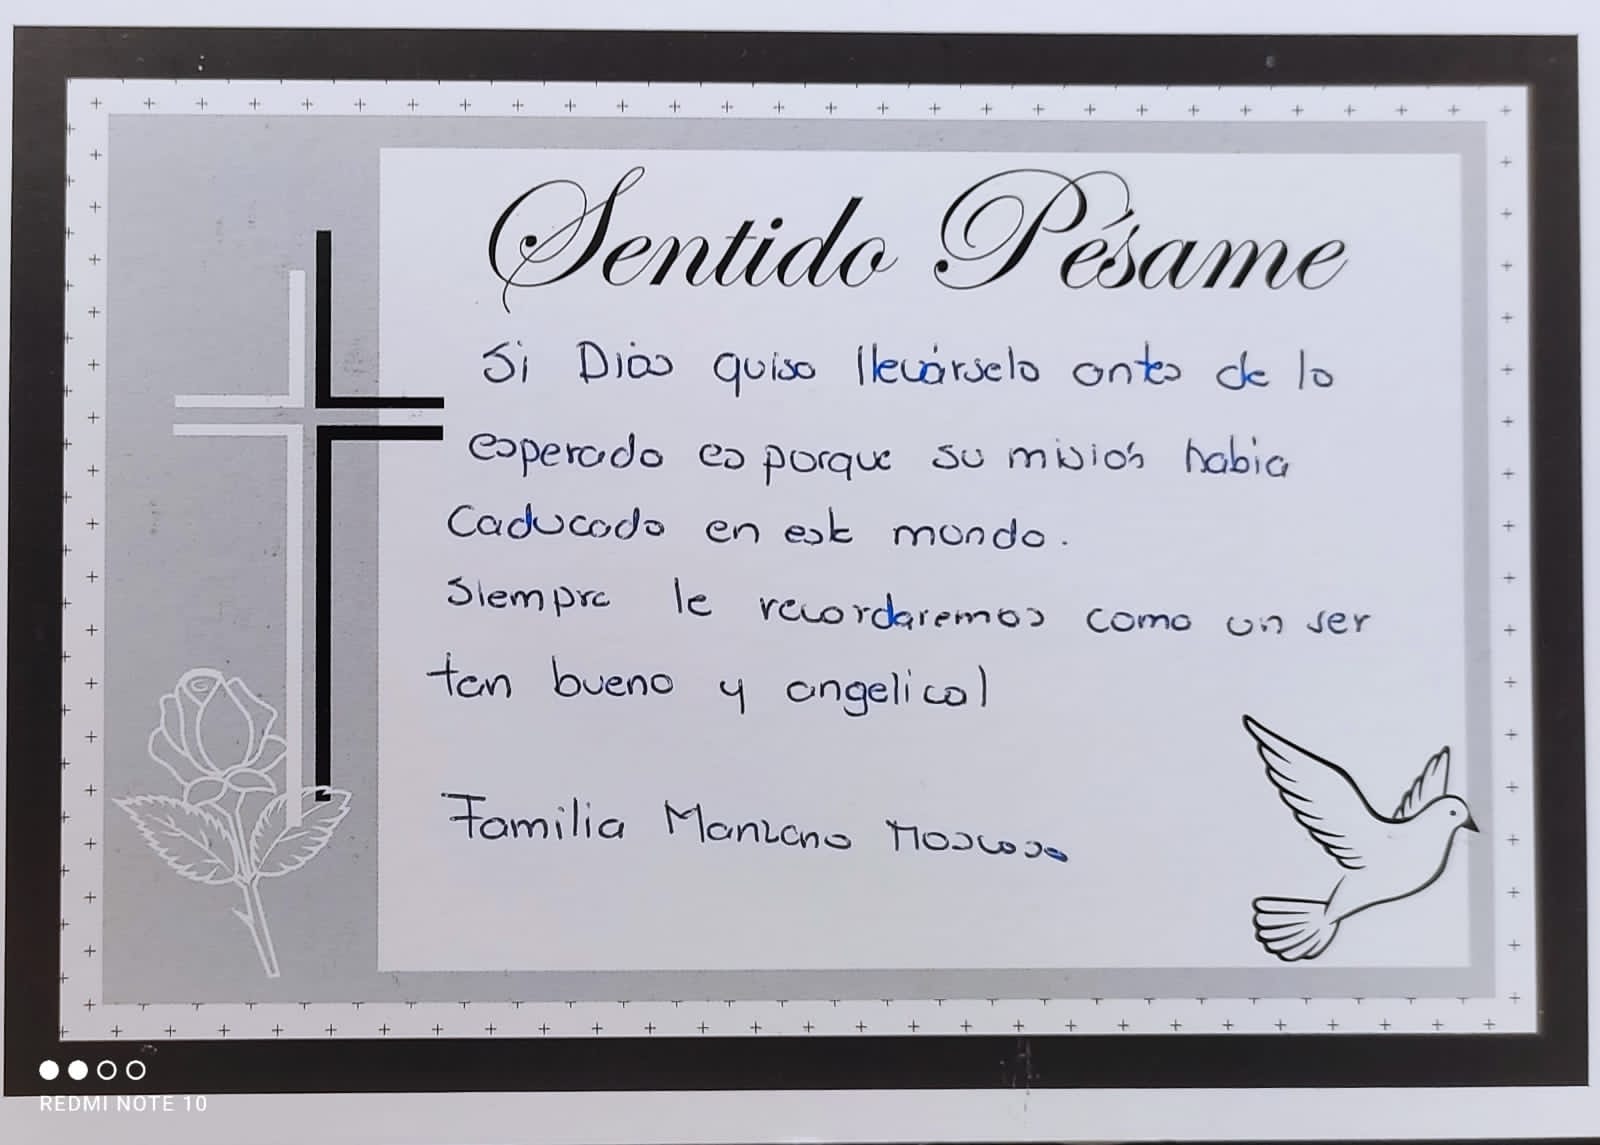 Sentido Pésame
Si Dios quiso llevárselo antes de lo
esperado es porque su misión habia
Caducado en este mundo.
Siempre le recordaremos como un ser
tan bueno y angelical
Familia Manzano Moscoso
REDMI NOTE 10